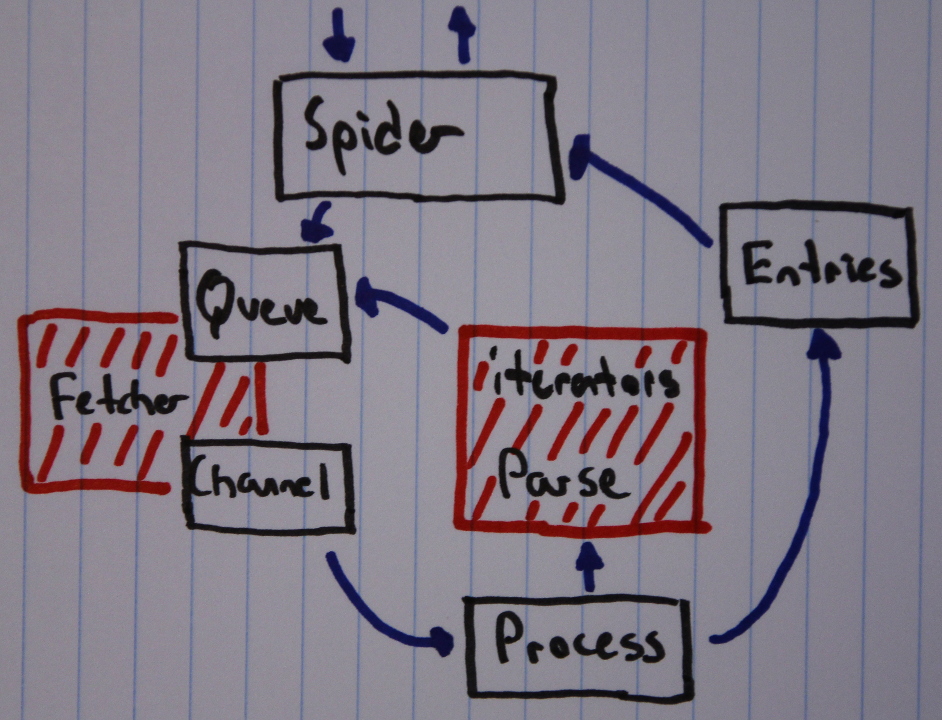 Spider
Queue
Entries
Fetcher
iterators
Parse
Channel
Process